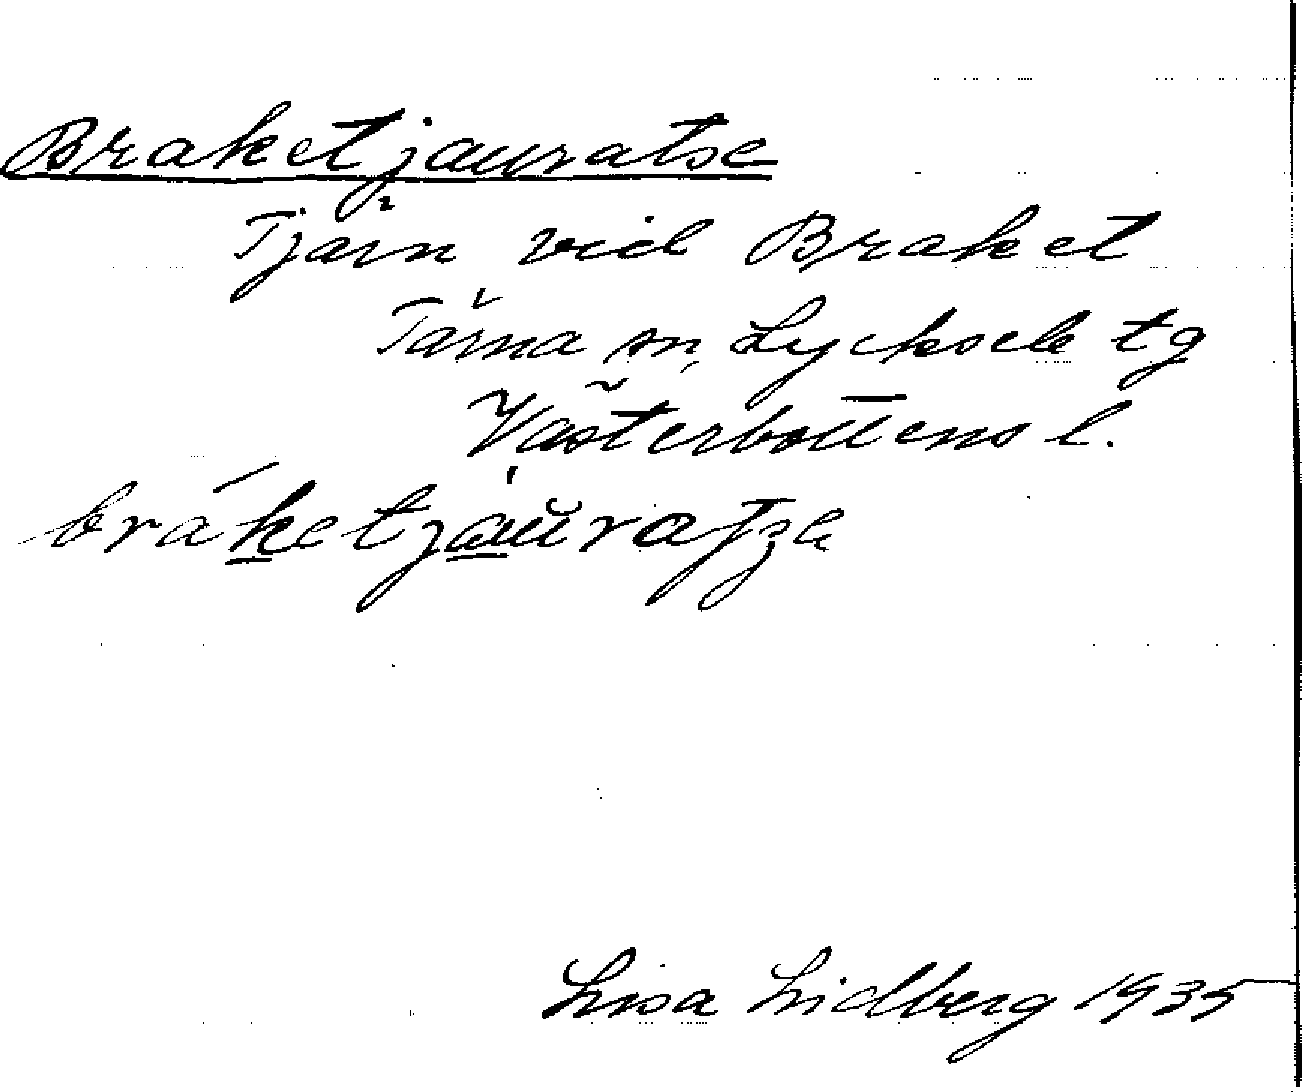 Braketjauratse
Tjärn vid Braket
Tärna sn, Lycksele tg
Västerbottens l.
Lisa Lidberg 1935